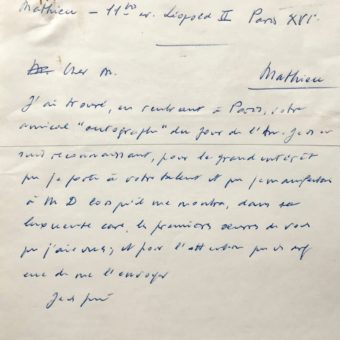 Mathieu – 11 bis av. Léopold II Paris XVI.
Cher M.
Mathieu
J'ai trouvé, en rentrant à Paris, votre
amical "autographe" du jour de l'An. Je vous en
suis reconnaissant, pour le grand intérêt
que je porte à votre talent et que je manifestai
à M D lorsqu'il me montra, dans sa
cave, les premières œuvres de vous
que j'aie vues, et pour l'attention
de me l'envoyer
Je